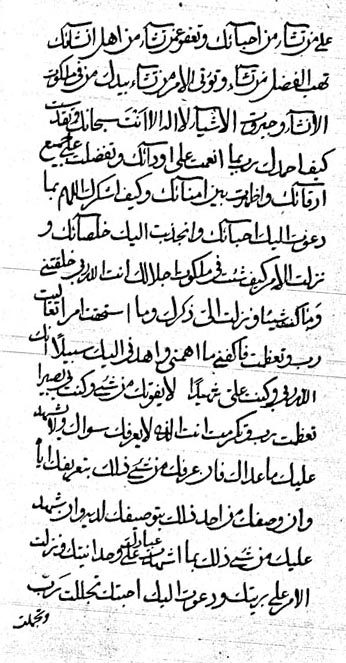 على من تشاء من احبائك وتعفو عمن تشاء من اهل انشائك
تهب الفضل من تشاء وتؤتى الامر من تشاء بيدك من فى ملكوت
الانشاء وجبروت الاشياء لا اله الا انت سبحانك وتقدست
كيف احمدك رب بما انعمت على اودائك وتفضلت على جميع
ارقائك واظهرت بين امنائك وكيف اشكرك اللهم بما
دعوت اليك احبائك وانجذبت اليك خلصائك و
نزلت الامر كيف شئت فى ملكوت اجلالك انت الله ربى خلقتنى
وما كنت شيئا ونزلت الى ذكرك وما استحققت امرا تعاليت
رب وتعظمت فاكفنى ما اهمنى واهدنى اليك سبيلا انك
الله ربى وكنت على شهيدا لا يفوتك من شئ وكنت بى بصيرا
تعظمت رب وتكرمت انت الله لا يعرفك سواك ولا يشهد
عليك ما عداك فان عرفك من شئ فذلك بتعريفك اياه
وان وصفك من احد فذلك بتوصيفك لديه وان شهد
عليك من شئ فذلك بما اشهدت عبادك على وحدانيتك ونزلت
الامر على بريتك ودعوت اليك احبتك تجللت رب
وتجملت